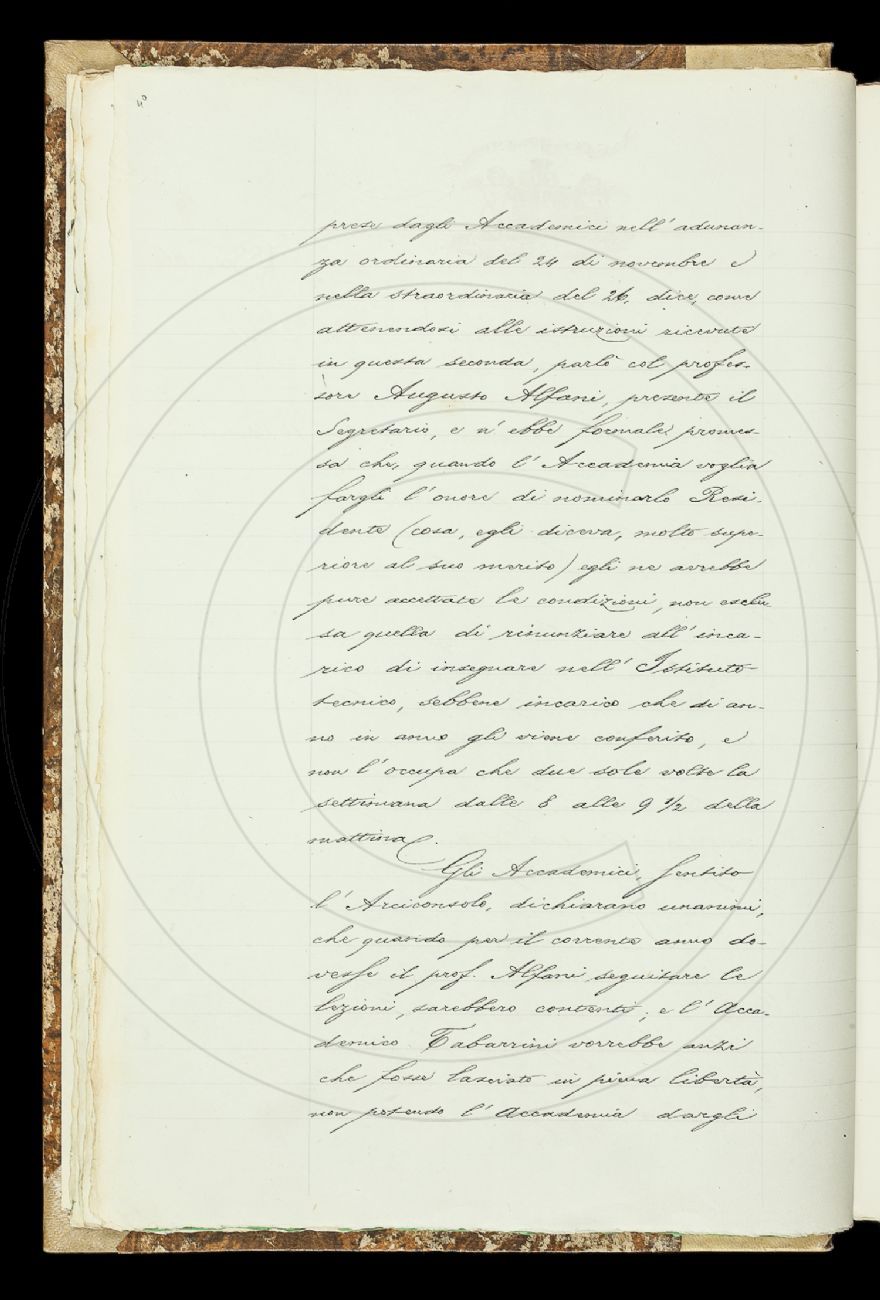 40
prese dagli Accademici nell'adunan-
za ordinaria del 24 di novembre e
nella straordinaria del 26, dice, come
attenendosi alle istruzioni ricevute
in questa seconda, parlò col profes-
sore Augusto Alfani, presente il
Segretario, e n'ebbe formale promes-
sa che, quando l'Accademia voglia
fargli l'onore di nominarlo Resi-
dente (cosa, egli diceva, molto supe-
riore al suo merito) egli ne avrebbe
pure accettate le condizioni, non esclu
sa quella di rinunziare all'inca-
rico di insegnare nell'Istituto
tecnico, sebbene incarico che di an-
no in anno gli viene conferito, e
non l'occupa che due sole volte la
settimana dalle 8 alle 9 1/2 della
mattina.
Gli Accademici, sentito
l'Arciconsolo, dichiarano unanimi,
che quando per il corrente anno do-
vesse il prof. Alfani seguitare le
lezioni, sarebbero contenti; e l'Acca-
demico Tabarrini vorrebbe anzi
che fosse lasciato in piena libertà,
non potendo l'Accademia dargli